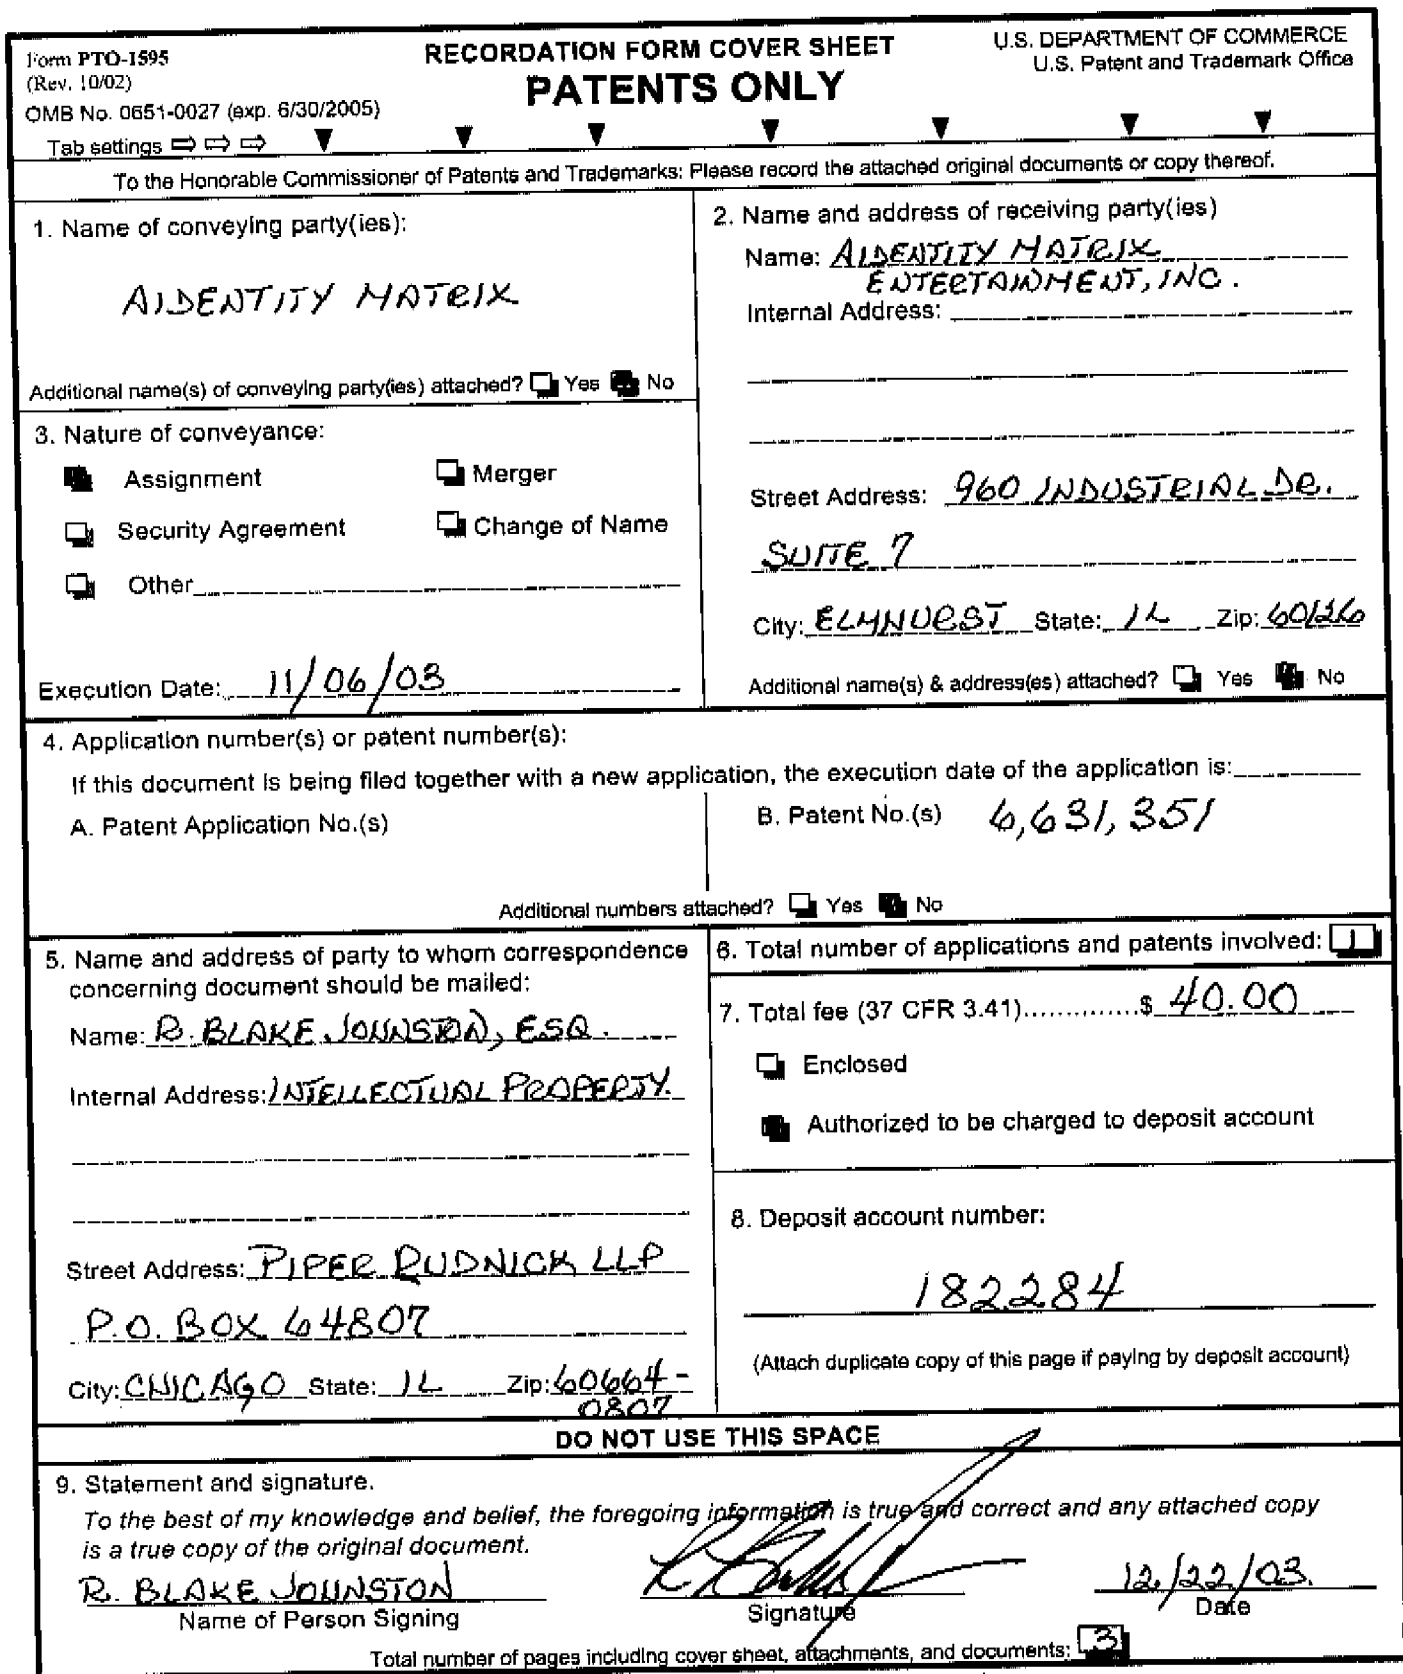 Form PTO-1595
(Rev. 10/02)
OMB No. 0651-0027 (exp. 6/30/2005)
Tab settings ⇨ ⇨ ⇨
RECORDATION FORM COVER SHEET
PATENTS ONLY
U.S. DEPARTMENT OF COMMERCE
U.S. Patent and Trademark Office
To the Honorable Commissioner of Patents and Trademarks: Please record the attached original documents or copy thereof.
1. Name of conveying party(ies):
AIDENTITY MATRIX
Additional name(s) of conveying party(ies) attached? Yes No
2. Name and address of receiving party(ies)
Name: AIDENTITY MATRIX
ENTERTAINMENT, INC.
Internal Address:
3. Nature of conveyance:
Assignment Merger
Security Agreement Change of Name
Other
Execution Date: 11/06/03
Street Address: 960 INDUSTRIAL DR.
SUITE 7
City: ELMHURST State: IL Zip: 60126
Additional name(s) & address(es) attached? Yes No
4. Application number(s) or patent number(s):
If this document is being filed together with a new application, the execution date of the application is:
A. Patent Application No.(s)
B. Patent No.(s) 6,631,351
Additional numbers attached? Yes No
5. Name and address of party to whom correspondence
concerning document should be mailed:
Name: R. BLAKE JOHNSTON, ESQ.
Internal Address: INTELLECTUAL PROPERTY
Street Address: PIPER RUDNICK LLP
P.O. BOX 64807
City: CHICAGO State: IL Zip: 60664-
0807
6. Total number of applications and patents involved: 1
7. Total fee (37 CFR 3.41)..............$ 40.00
Enclosed
Authorized to be charged to deposit account
8. Deposit account number:
182284
(Attach duplicate copy of this page if paying by deposit account)
DO NOT USE THIS SPACE
9. Statement and signature.
To the best of my knowledge and belief, the foregoing information is true and correct and any attached copy
is a true copy of the original document.
R. BLAKE JOHNSTON
Name of Person Signing
Signature
12/22/03
Date
Total number of pages including cover sheet, attachments, and documents: 3